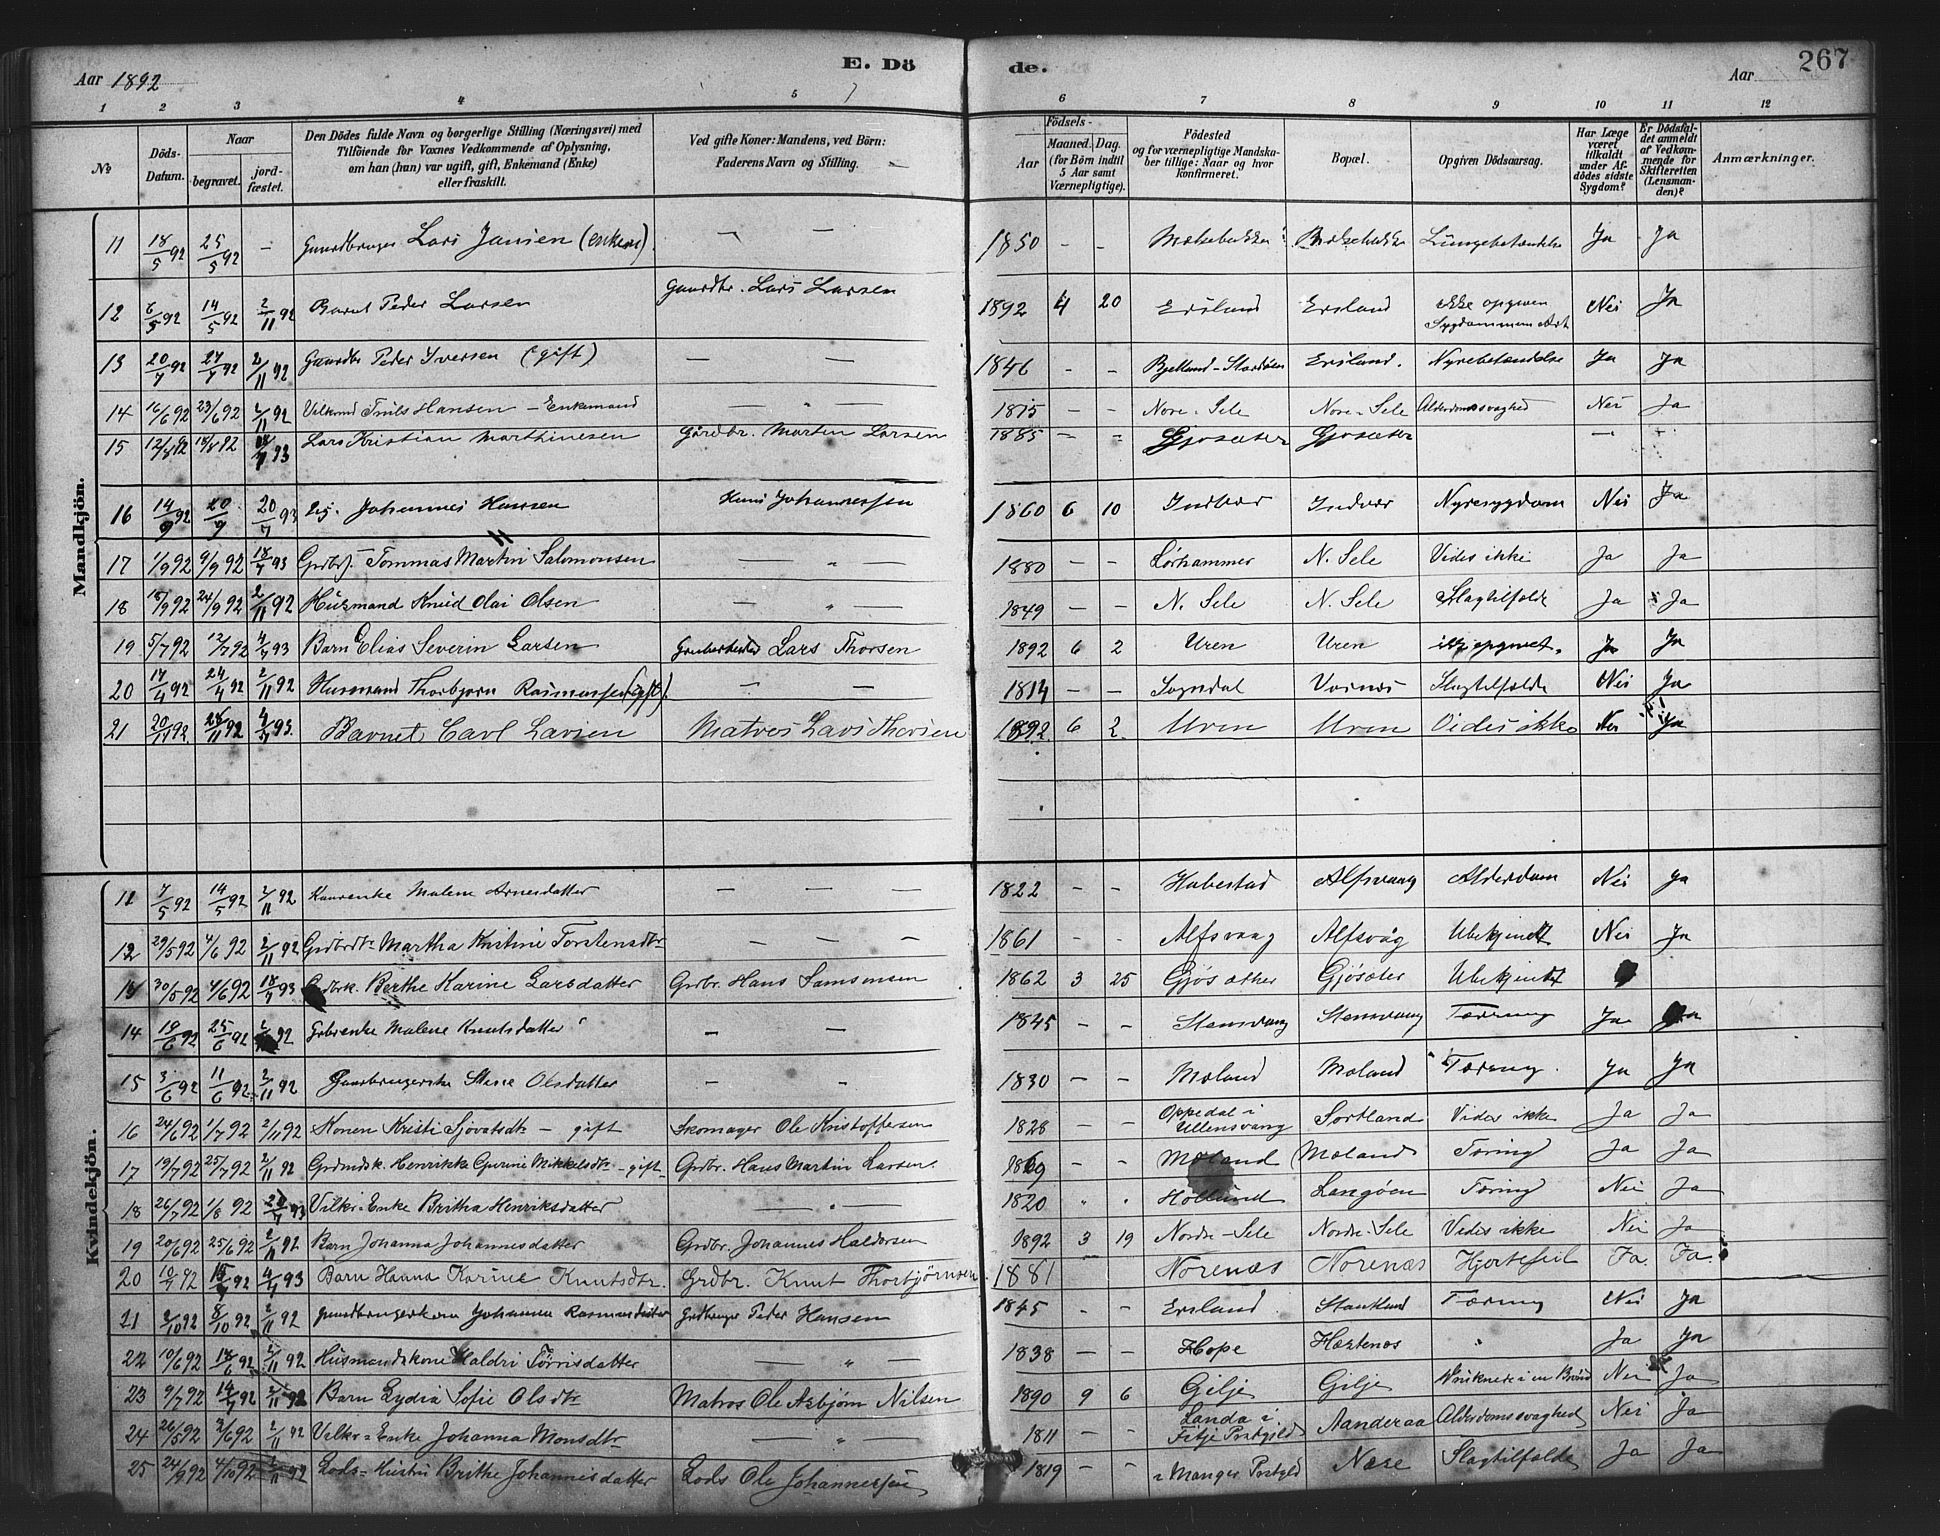 Aar 1892 E. Dö de. Aar 267
1 2 3 4 5 6 7 8 9 10 11 12
No Döds-Datum. Naar begravet. jordfæstet. Den Dödes fulde Navn og borgerlige Stilling (Næringsvei) med Tilföiende for Voxnes Vedkommende af Oplysning, om han (hun) var ugift, gift, Enkemand (Enke) eller fraskilt. Ved gifte Koner: Mandens, ved Börn: Faderens Navn og Stilling. Födsels- Aar Maaned. Dag. (for Börn indtil 5 Aar samt Værnepligtige). Födested og for værnepligtige Mandskaber tillige: Naar og hvor konfirmeret. Bopæl. Opgiven Dödsaarsag. Har Læge været tilkaldt under Afdödes sidste Sygdom? Er Dödsfaldet anmeldt af Vedkommende for Skifteretten (Lensmanden)? Anmærkninger.
Mandkjön.
11 18/5 92 25/5 92 - Gaardbruger Lars Jansen (enkem) — — 1850 - - Lungebetændelse Ja Ja
12 6/5 92 14/5 92 2/11 92 Barnet Peder Larsen Gaardbr. Lars Larsen 1892 4 20 Ersland Ersland ikke opgiven Sygdommens Art Nei Ja
13 20/7 92 27/7 92 2/11 92 Gaardbr Peder Iversen (gift) — — 1846 - - Ersland. Nyrebetændelse Ja Ja
14 16/6 92 23/6 92 2/11 92 Truls Hansen - Enkemand — " — 1815 - - Nore-Sele Nore-Sele Alderdomssvaghed Nei Ja
15 12/8 92 18/8 92 18/7 93 Lars Kristian Marthinesen Gårdbr. Martin Larsen 1885 - - Gjøsæter Gjøsæter — -
16 14/9 92 20/9 20/7 93 Johannes Hansen Hans Johannessen 1860 6 10 Indvær Indvær Nyresygdom Nei Ja
17 1/9 92 9/9 92 18/7 93 Tommas Martin Salomonsen — " — 1880 - - Lørhammer N. Sele Vides ikke Ja Ja
18 18/9 92 24/9 92 2/11 92 Husmand Knud Olai Olsen — " — 1849 - - N. Sele N. Sele Slagtilfælde Ja Ja
19 5/7 92 12/7 92 4/7 93 Barn Elias Severin Larsen Lars Thorsen 1892 6 2 Uren Uren opgivet. Ja Ja
20 17/4 92 24/4 92 2/11 92 Husmand Thorbjørn Rasmussen (gift). — — 1814 - - Sogndal Vornes Slagtilfælde Nei Ja
21 20/11 92 28/11 92 4/7 93. Barnet Carl Larsen Matros Lars Thorsen 1892 6 2 Uren Uren Vides ikke Nei Ja
Kvindekjön.
11 7/5 92 14/5 92 2/11 92 Malene Arnesdatter — — — 1822 - - Habestad Alfsvaag Alderdom Nei Ja
12 29/5 92 4/6 92 2/11 92 Martha Kristine Torstensdtr — — — 1861 - - Alfsvaag Alfsvåg Ubekjendt Nei Ja
13 30/5 92 4/6 92 18/7 93 Grdbrk. Berthe Karine Larsdatter Grdbr. Hans Samsonsen 1862 3 25 Gjøsæther Gjøsæter Ubekjendt
14 19/6 92 25/6 92 2/11 92 Malene Knutsdatter — — 1845 - - Stensvaag Stensvaag Tæring Ja Ja
15 3/6 92 11/6 92 2/11 92 Gaarbrugerske Stene Olsdatter - - 1830 - - Mæland Mæland Tæring. Ja Ja
16 24/6 92 1/7 92 2/11 92 Konen Kristi Sjovatsdtr - gift Skomager Ole Kristoffersen 1828 - - Oppedal i Ullensvang Sortland Vides ikke Ja Ja
17 19/7 92 25/7 92 2/11 92 Henrikke Gurine Mikkelsdtr - gift Grdbr. Hans Martin Larsen. 1869 - - Mæland Mæland Tæring Ja Ja
18 26/7 92 1/8 92 20/7 93 Vilkr-Enke Britha Henriksdatter — " — 1820 " " Hollund Langøen Tæring Nei Ja
19 20/6 92 25/6 92 2/11 92 Barn Johanna Johannesdatter Grdbr. Johannes Haldorsen 1892 3 19 Nordre-Sele Nordre-Sele Vides ikke Nei Ja
20 10/7 92 15/7 92 4/7 93 Barn Hanna Karine Knutsdtr. Grdbr. Knut Thorbjørnsen 1881 Norenæs Norenæs Hjertefeil Ja. Ja.
21 2/10 92 8/10 92 2/11 92 Gaardbrugerkone Johanna Rasmusdatter Peder Hansen 1845 - - Ersland Tæring Nei Ja
22 10/6 92 18/6 92 2/11 92 Husmandskone Haldri Tørrisdatter — " — 1838 - - Hope Hæstenæs " Ja Ja
23 9/7 92 14/7 92 2/11 92 Barn Lydia Sofie Olsdtr Matros Ole Asbjørn Nilsen 1890 9 6 Gilje Gilje Druknede i en Brønd Nei Ja
24 26/5 92 3/6 92 2/11 92 Vilkr-Enke Johanna Monsdtr — " — 1811 - - Landa i Fitje Prstgjeld Aanderaa Alderdomssvaghed Nei Ja
25 24/9 92 4/10 92 2/11 92 Lods-Hustru Brithe Johannesdatter Lods Ole Johannessen 1819 - - Manger Prstgjld Næse Slagtilfælde Ja Ja